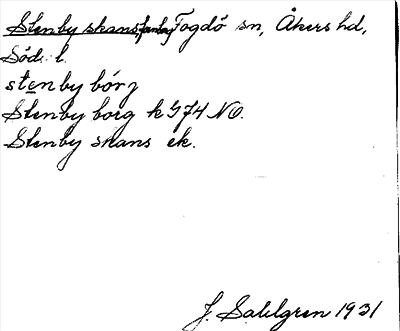 Stenby skans, Fogdö sn, Åkers hd,
Söd. l.
stenby bórj
Stenby borg k G74 NO.
Stenby skans ek.
J. Sahlgren 1931